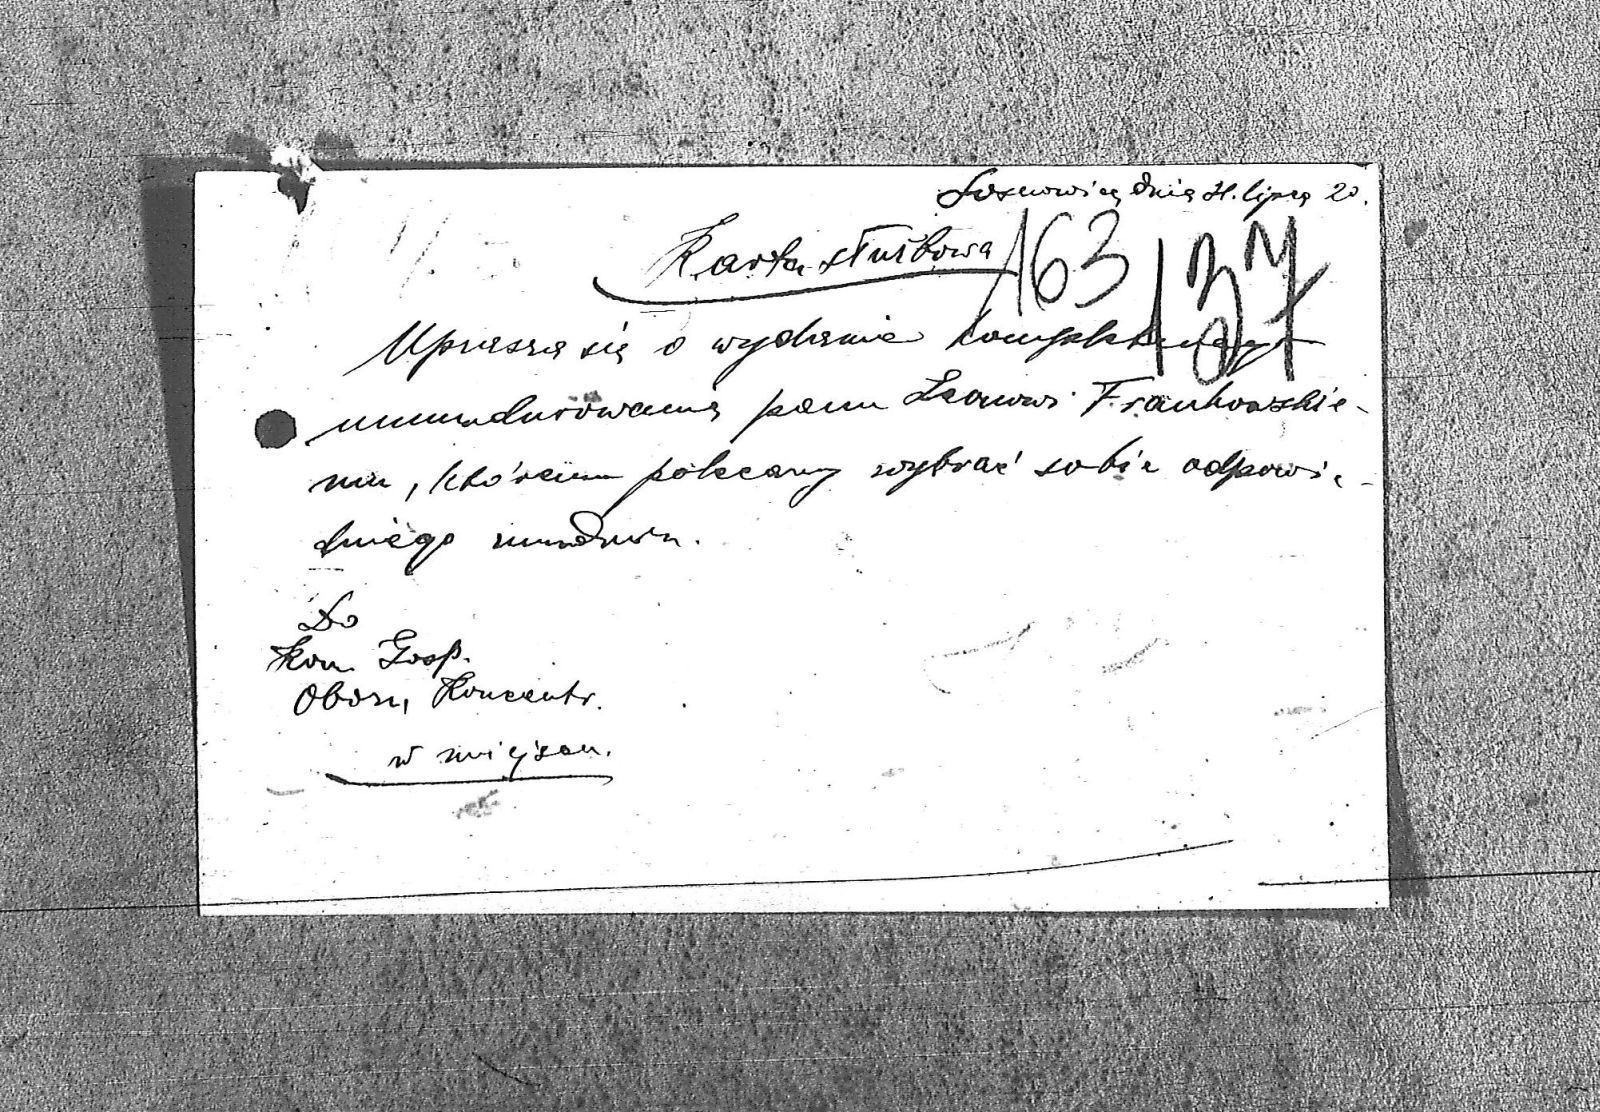 Sosnowice, dnia 21. lipca 20.
Karta służbowa 163 137
Uprasza się o wydanie kompletnego
umundurowania panu Leonowi Frankowskie-
mu, któremu polecamy wybrać sobie odpowie-
dniego munduru.
Do
Kom. Gosp.
Obozu Koncentr.
w miejscu.